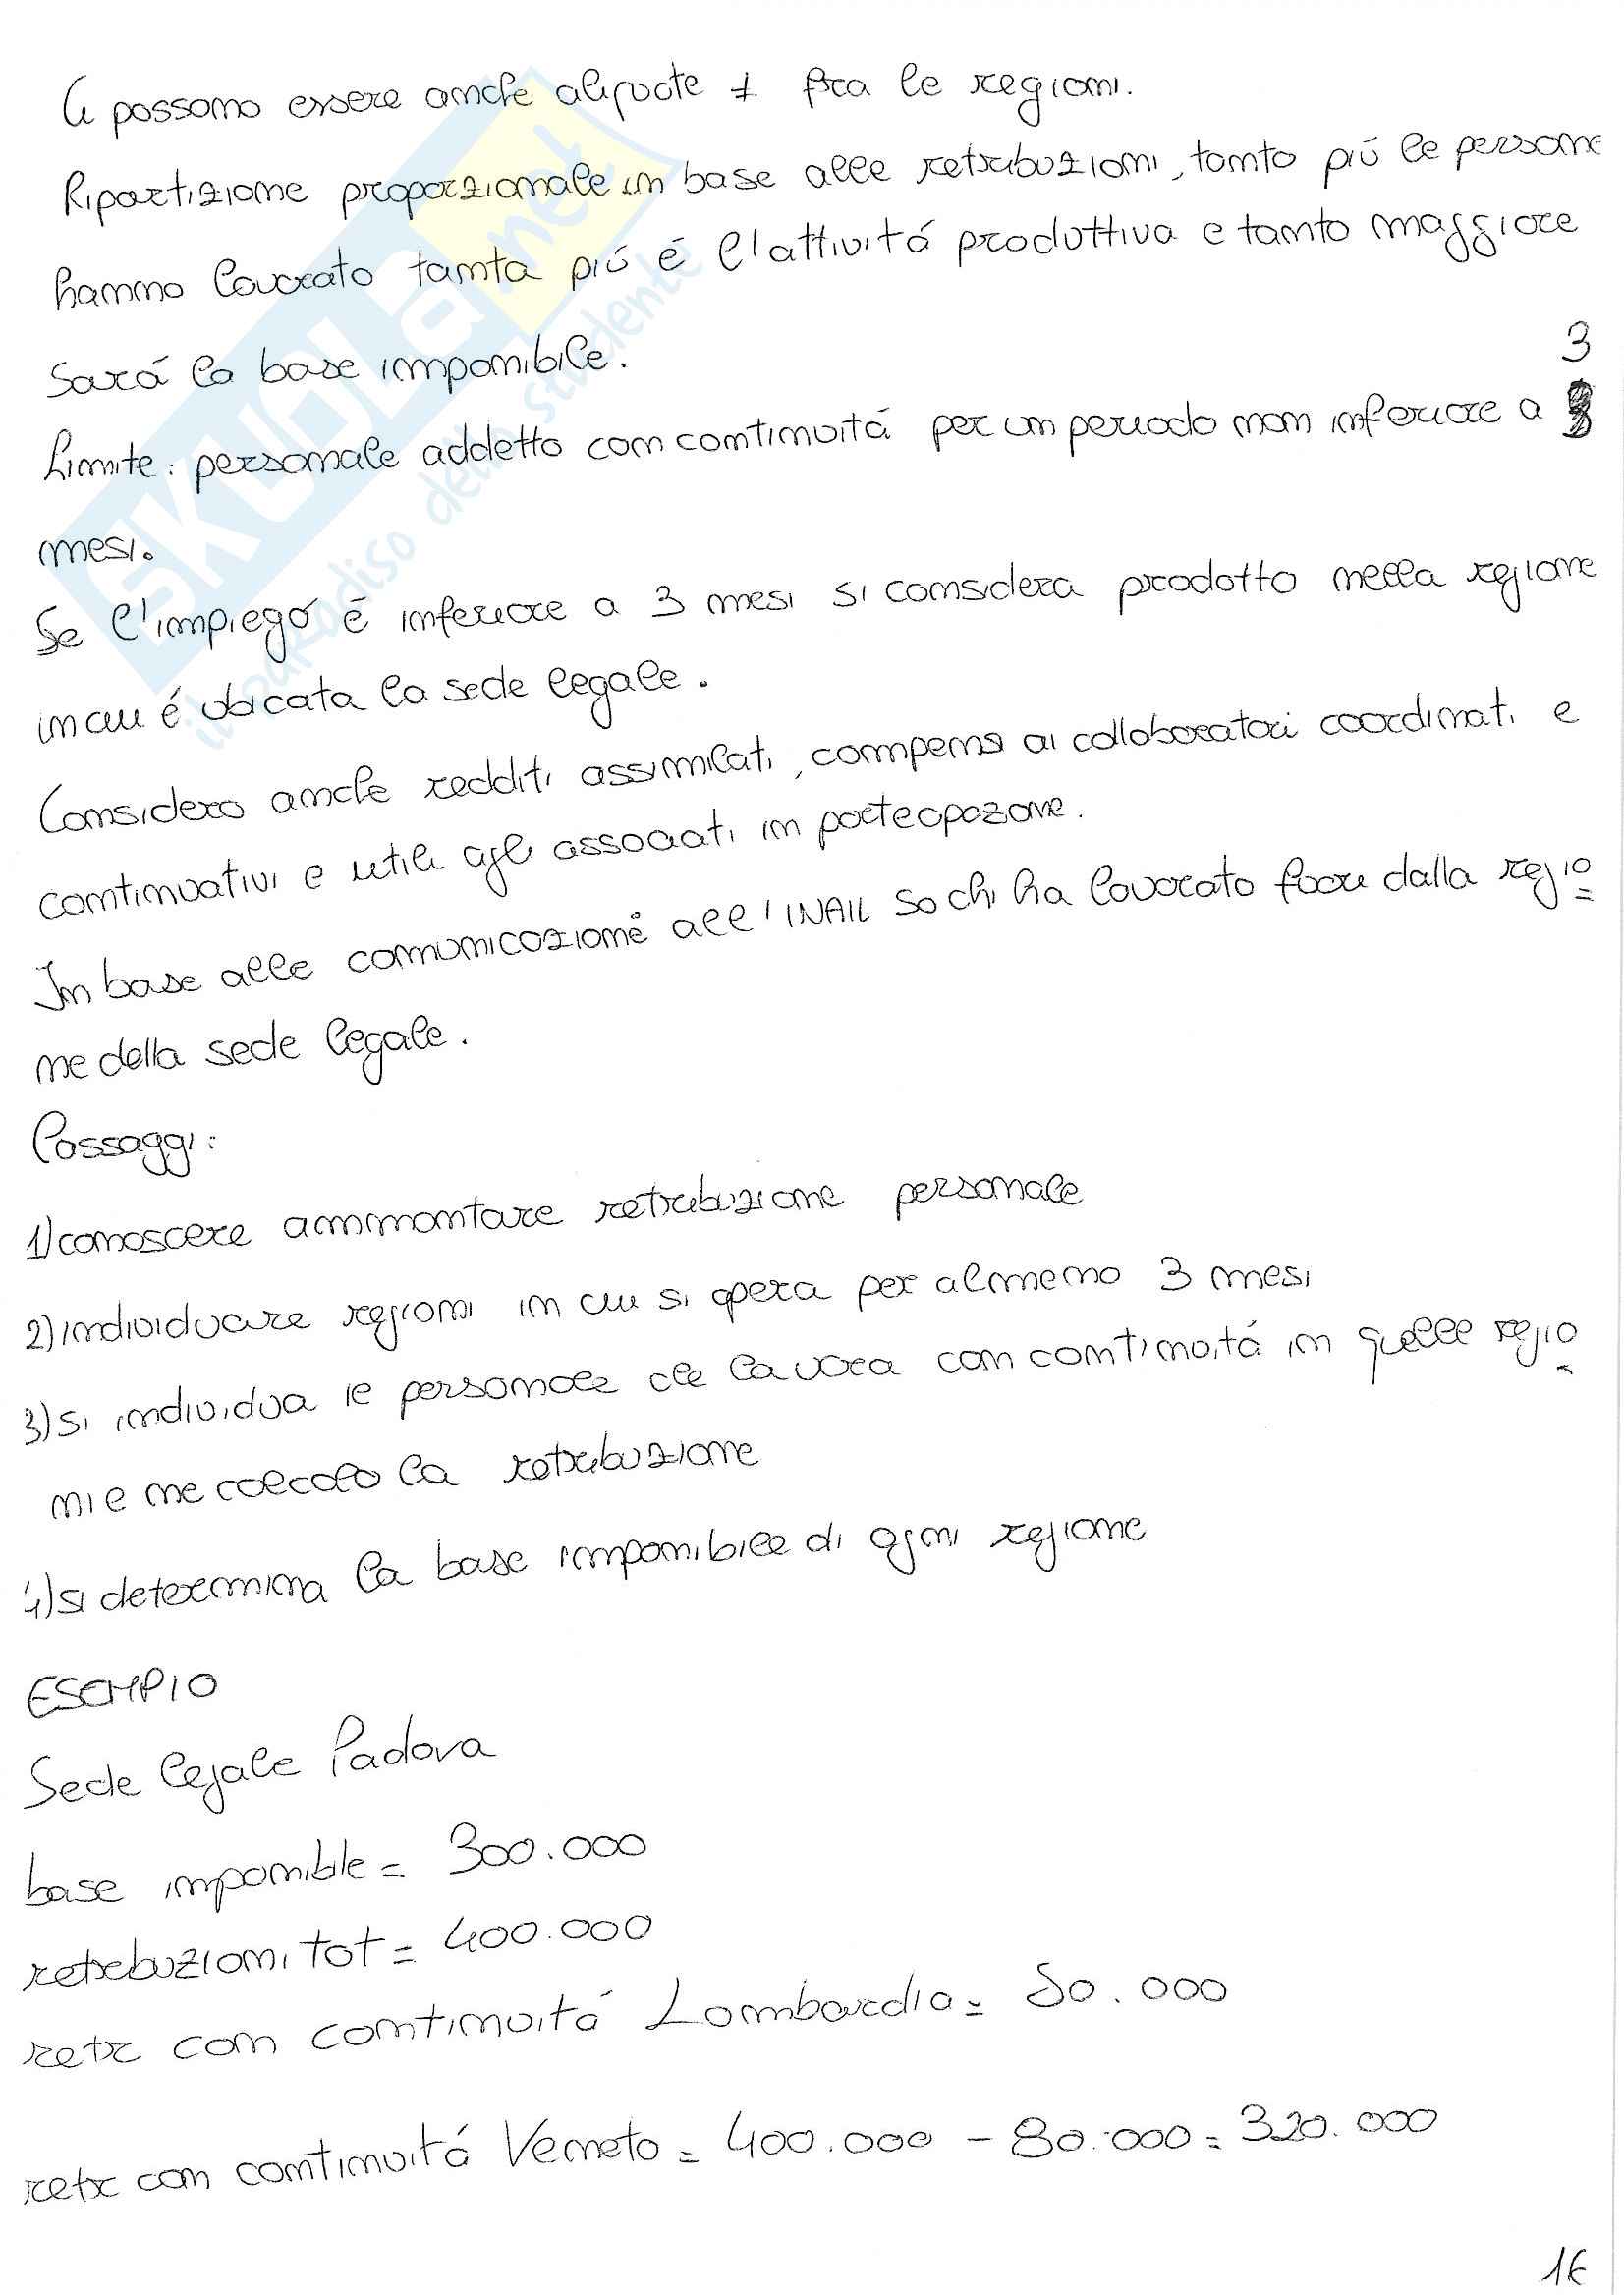 Ci possono essere anche aliquote ≠ fra le regioni.
Ripartizione proporzionale in base alle retribuzioni, tanto più le persone
hanno lavorato tanta più é l'attività produttiva e tanto maggiore
sará la base imponibile.
3
Limite: personale addetto con continuitá per un periodo non inferiore a
mesi.
Se l'impiego é inferiore a 3 mesi si considera prodotto nella regione
in cui é ubicata la sede legale.
Considero anche redditi assimilati, compensi ai collaboratori coordinati e
continuativi e utili agli associati in partecipazione.
In base alle comunicazione all'INAIL so chi ha lavorato fuori dalla regio=
ne della sede legale.
Passaggi:
1) conoscere ammontare retribuzione personale
2) individuare regioni in cui si opera per almeno 3 mesi
3) si individua le personale che lavora con continuitá in quelle regio-
ni e ne calcolo la retribuzione
4) si determina la base imponibile di ogni regione
ESEMPIO
Sede legale Padova
base imponible = 300.000
retribuzioni tot = 400.000
retr con continuitá Lombardia = 80.000
retr con continuitá Veneto = 400.000 - 80.000 = 320.000
16
SKUOLA.net
il paradiso dello studente